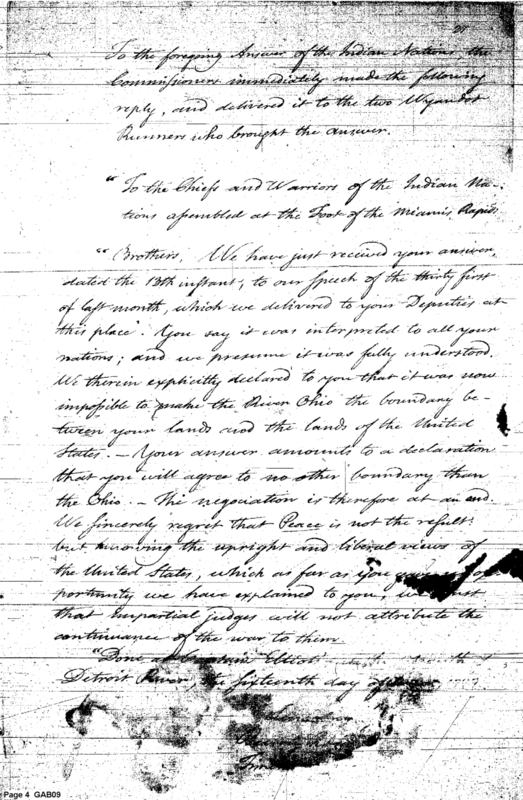 To the foregoing Answer of the Indian Nations the
Commissioners immediately made the following
reply, and delivered it to the two Wyandot
Runners who brought the answer.
"To the Chiefs and Warriors of the Indian Na-
tions assembled at the Foot of the Miamis Rapids
"Brothers, We have just received your answer,
dated the 13th instant, to our speech of the thirty first
of last month, which we delivered to your Deputies at
this place. You say it was interpreted to all your
nations; and we presume it was fully understood.
We therein explicitly declared to you that it was now
impossible to make the River Ohio the boundary be-
tween your lands and the lands of the United
States. — Your answer amounts to a declaration
that you will agree to no other boundary than
the Ohio. — The negociation is therefore at an end.
We sincerely regret that Peace is not the result:
but knowing the upright and liberal views of
the United States, which as far as you op-
portunity we have explained to you, we trust
that impartial judges will not attribute the
continuance of the war to them.
"Done at Captain Elliot's
Detroit River, the sixteenth day of
Page 4 GAB09